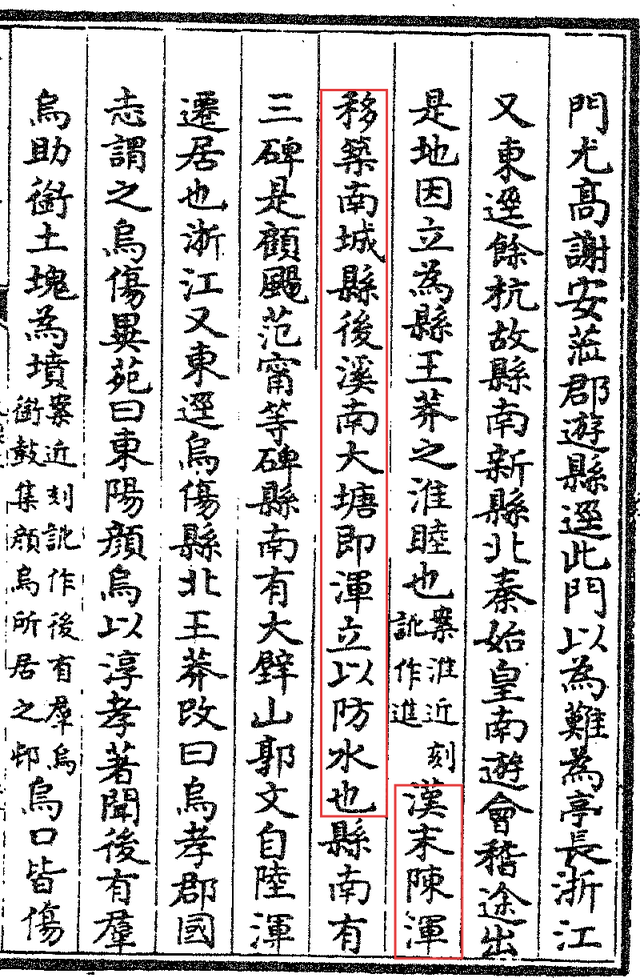 門尤高謝安蒞郡遊縣逕此門以為難為亭長浙江
又東逕餘杭故縣南新縣北秦始皇南遊會稽途出
是地因立為縣王莽之淮睦也案淮近刻訛作進漢末陳渾
移築南城縣後溪南大塘即渾立以防水也縣南有
三碑是顧颺范甯等碑縣南有大壁山郭文自陸渾
遷居也浙江又東逕烏傷縣北王莽改曰烏孝郡國
志謂之烏傷異苑曰東陽顏烏以淳孝著聞後有羣
烏助銜土塊為墳案近刻訛作後有羣烏銜鼓集顏烏所居之邨烏口皆傷